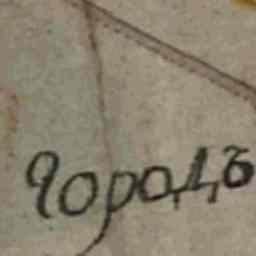 городъ